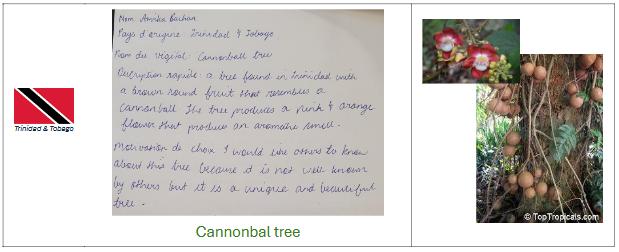 Trinidad & Tobago
Nom: Annika Bachan
Pays d'origine: Trinidad & Tobago
Nom du végétal: Cannonball tree
Description rapide: a tree found in Trinidad with
a brown round fruit that resembles a
Cannonball. The tree produces a pink & orange
flower that produces an aromatic smell.
Motivation de choix I would like others to know
about this tree because it is not well known
by others but it is a unique and beautiful
tree.
Cannonbal tree
© TopTropicals.com